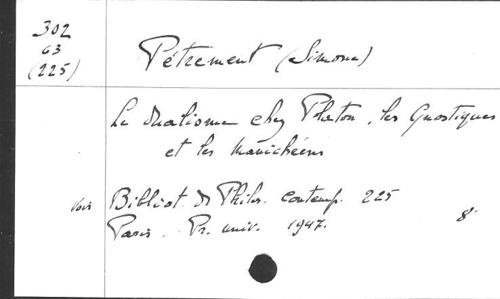 302
63
(225)
Pétrement (Simone)
Le dualisme chez Platon, les Gnostiques
et les Manichéens
Voir Bibliot. de Philos. contemp. 225
Paris. Pr. univ. 1947. 8°